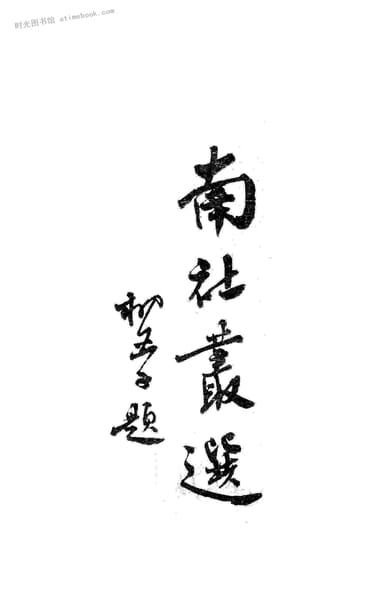 时光图书馆 atimebook.com
南社叢選
柳亚子題